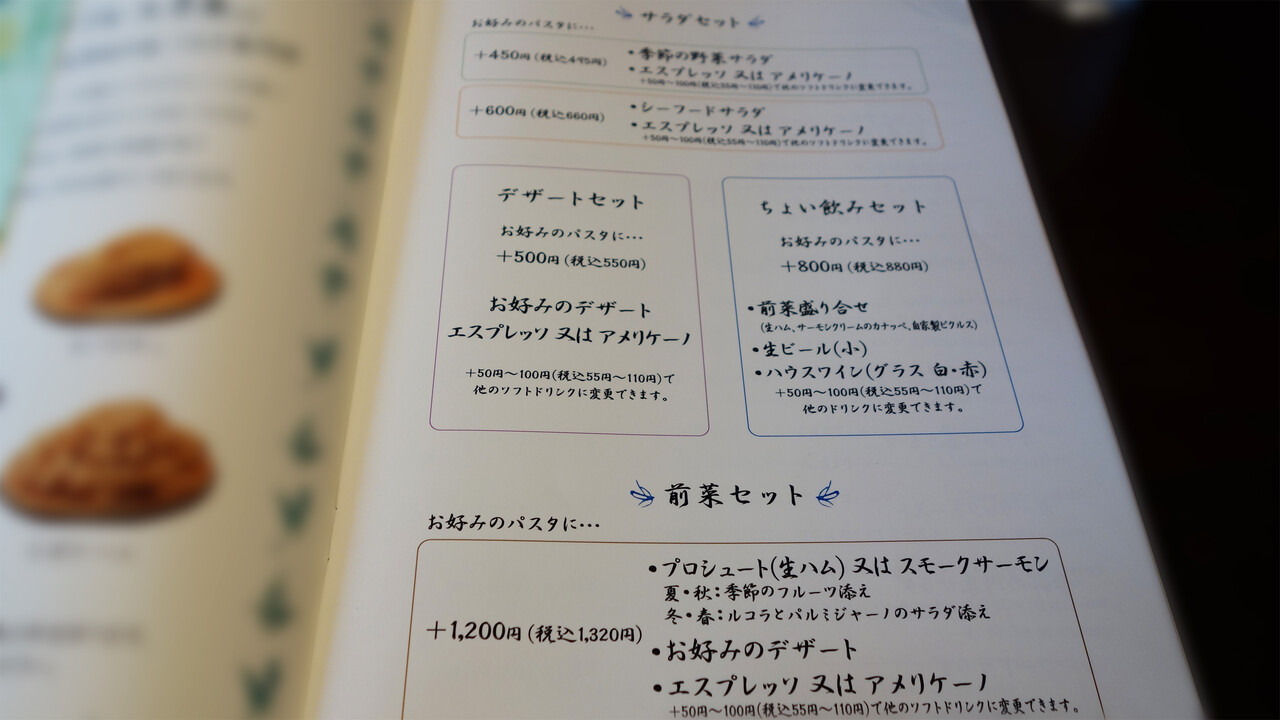 サラダセット
お好みのパスタに…
+450円(税込495円)
・季節の野菜サラダ
・エスプレッソ 又は アメリケーノ
+50円〜100円(税込55円〜110円)で他のソフトドリンクに変更できます。
+600円(税込660円)
・シーフードサラダ
・エスプレッソ 又は アメリケーノ
+50円〜100円(税込55円〜110円)で他のソフトドリンクに変更できます。
デザートセット
お好みのパスタに…
+500円(税込550円)
お好みのデザート
エスプレッソ 又は アメリケーノ
+50円〜100円(税込55円〜110円)で
他のソフトドリンクに変更できます。
ちょい飲みセット
お好みのパスタに…
+800円(税込880円)
・前菜盛り合せ
(生ハム、サーモンクリームのカナッペ、自家製ピクルス)
・生ビール(小)
・ハウスワイン(グラス 白・赤)
+50円〜100円(税込55円〜110円)で
他のドリンクに変更できます。
前菜セット
お好みのパスタに…
+1,200円(税込1,320円)
・プロシュート(生ハム) 又は スモークサーモン
夏・秋:季節のフルーツ添え
冬・春:ルコラとパルミジャーノのサラダ添え
・お好みのデザート
・エスプレッソ 又は アメリケーノ
+50円〜100円(税込55円〜110円)で他のソフトドリンクに変更できます。